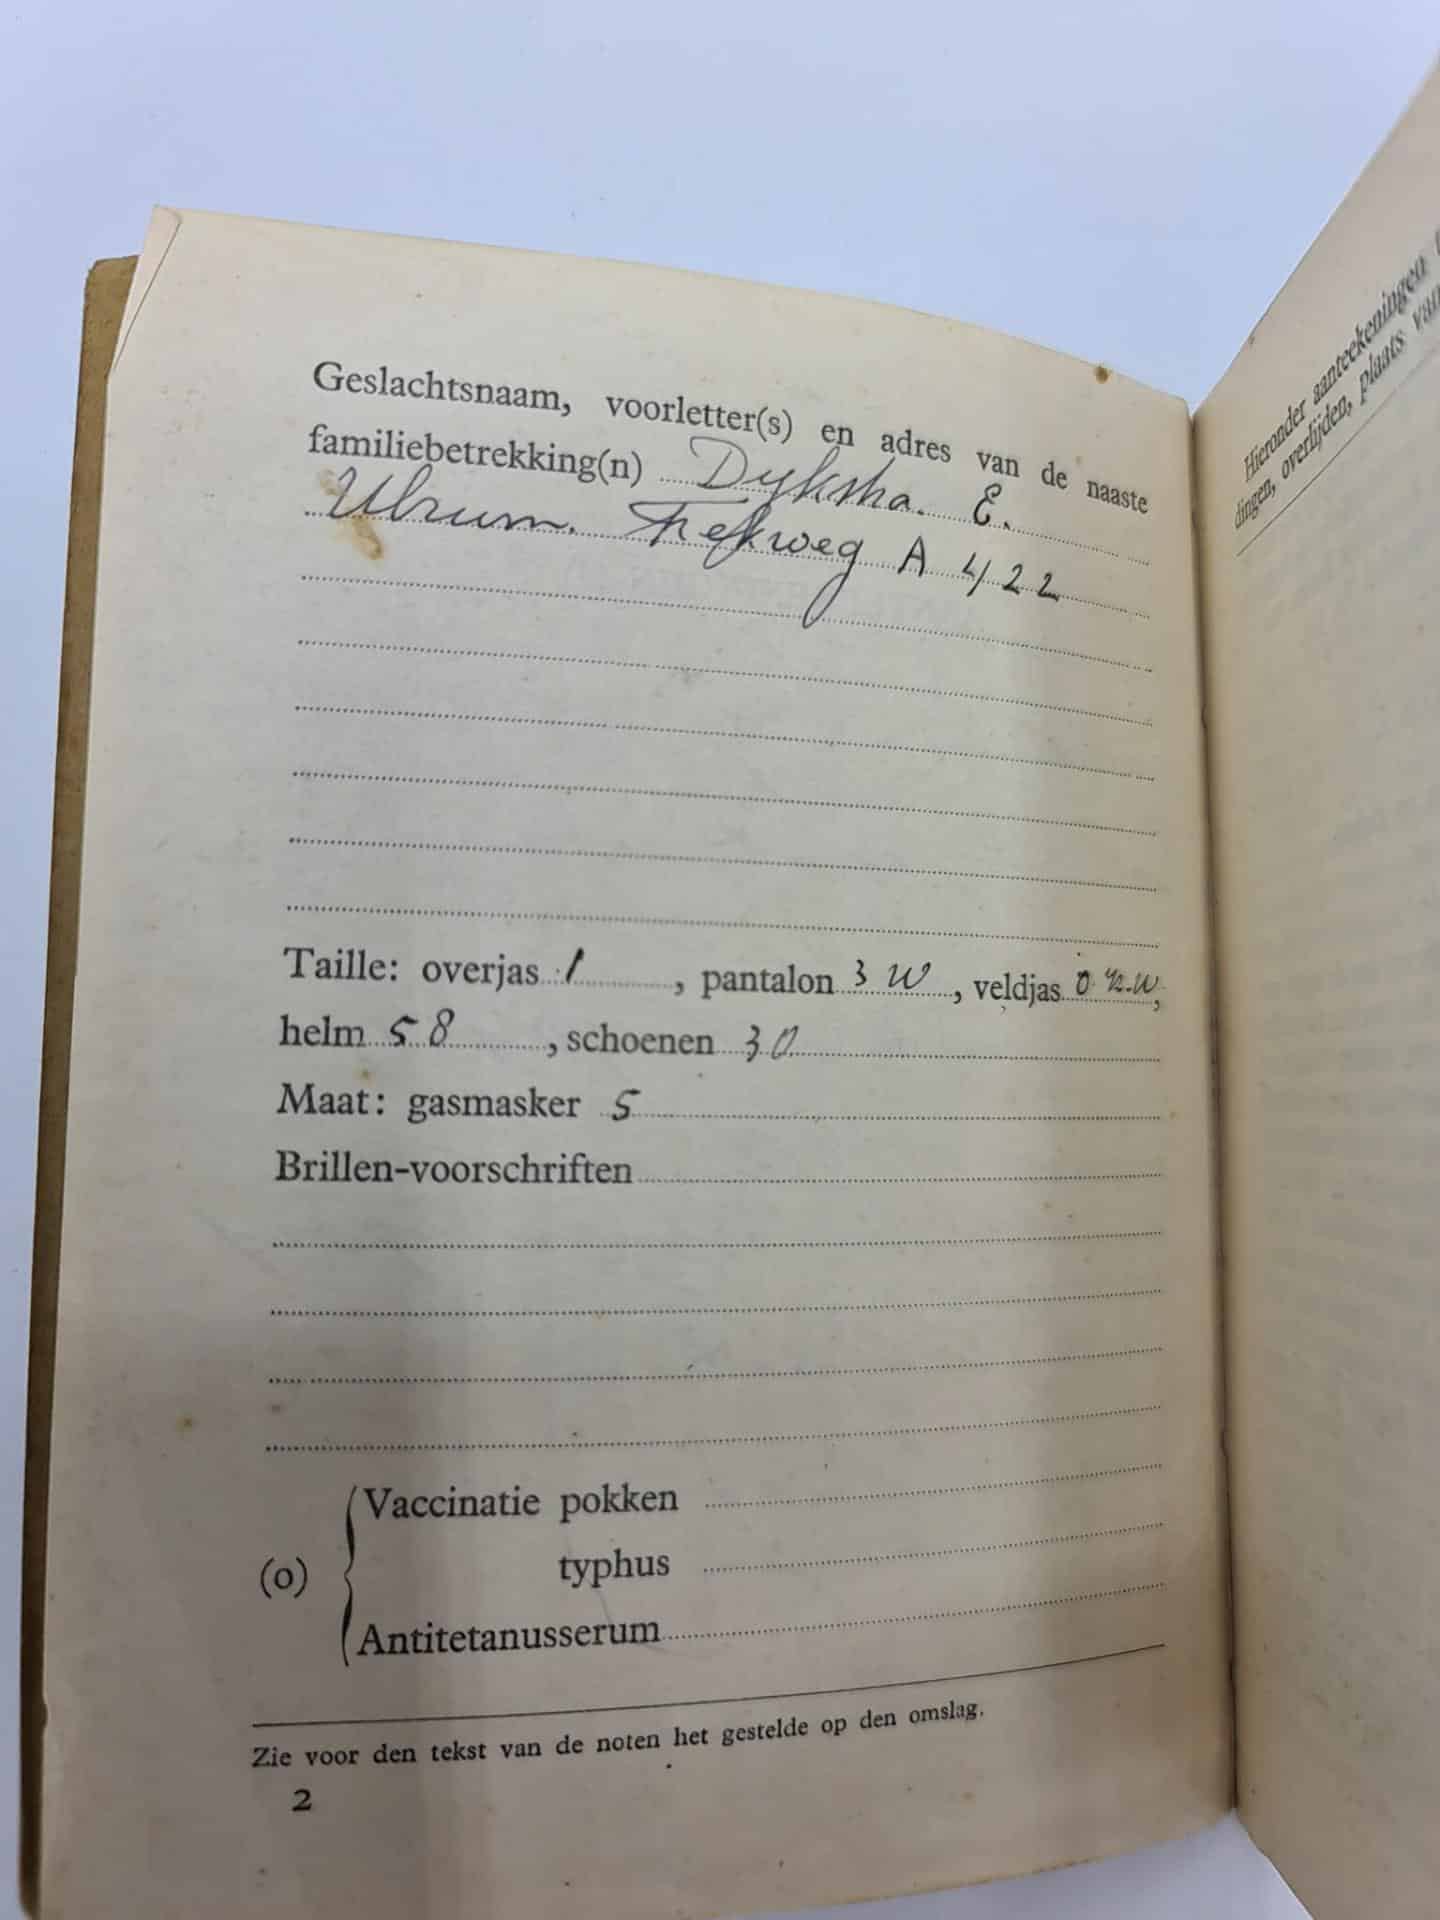 Geslachtsnaam, voorletter(s) en adres van de naaste
familiebetrekking(n) Dykstra. E.
Ulrum. Trekweg A 422
Taille: overjas 1, pantalon 3 W, veldjas 0
helm 58, schoenen 30
Maat: gasmasker 5
Brillen-voorschriften
(o) Vaccinatie pokken
typhus
Antitetanusserum
Zie voor den tekst van de noten het gestelde op den omslag.
2
Hieronder aanteekeningen
dingen, overlijden, plaats van